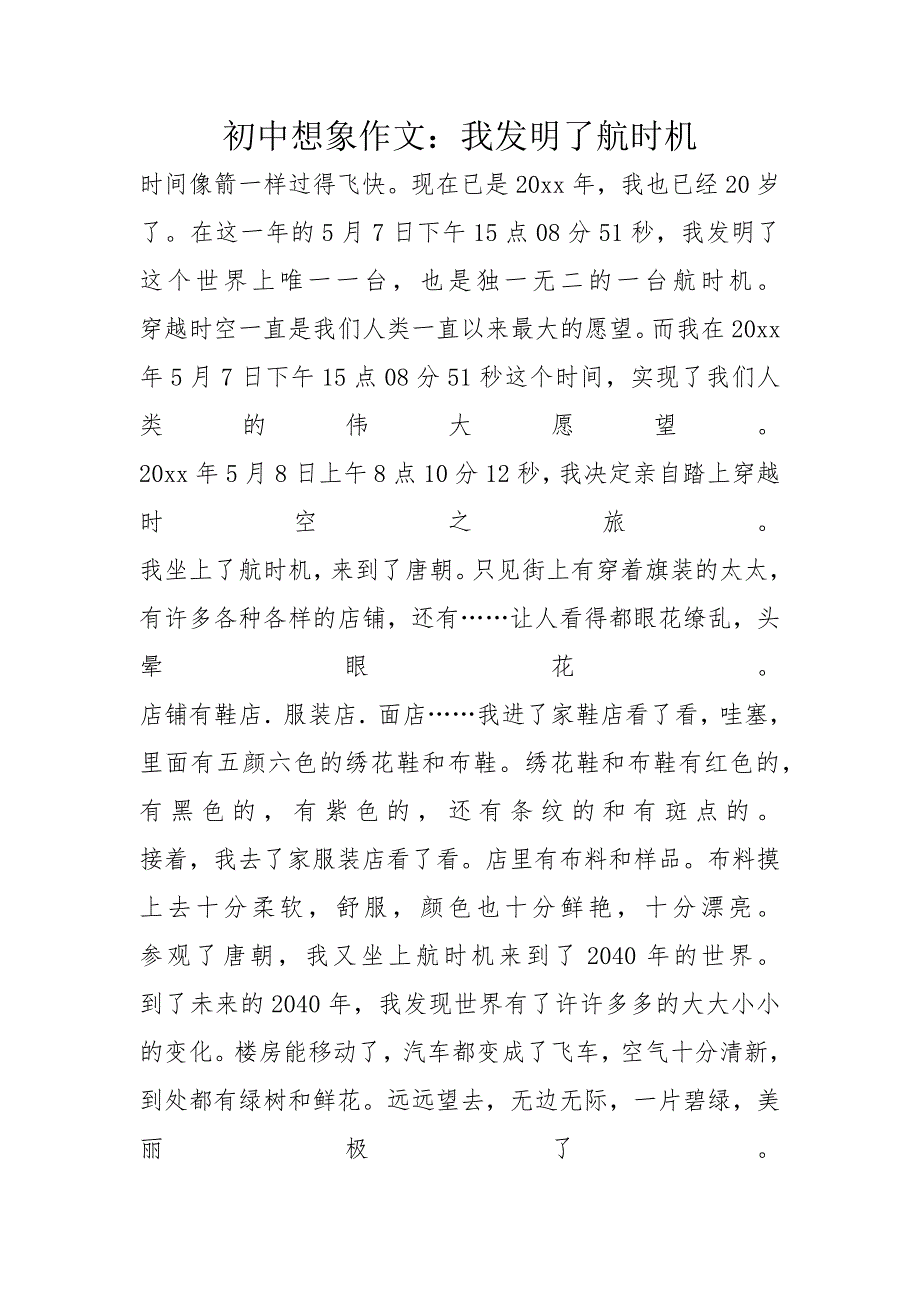 初中想象作文：我发明了航时机
时间像箭一样过得飞快。现在已是 20xx 年，我也已经 20 岁
了。在这一年的 5 月 7 日下午 15 点 08 分 51 秒，我发明了
这个世界上唯一一台，也是独一无二的一台航时机。
穿越时空一直是我们人类一直以来最大的愿望。而我在 20xx
年 5 月 7 日下午 15 点 08 分 51 秒这个时间，实现了我们人
类的伟大愿望。
20xx 年 5 月 8 日上午 8 点 10 分 12 秒，我决定亲自踏上穿越
时空之旅。
我坐上了航时机，来到了唐朝。只见街上有穿着旗装的太太，
有许多各种各样的店铺，还有……让人看得都眼花缭乱，头
晕眼花。
店铺有鞋店．服装店．面店……我进了家鞋店看了看，哇塞，
里面有五颜六色的绣花鞋和布鞋。绣花鞋和布鞋有红色的，
有黑色的，有紫色的，还有条纹的和有斑点的。
接着，我去了家服装店看了看。店里有布料和样品。布料摸
上去十分柔软，舒服，颜色也十分鲜艳，十分漂亮。
参观了唐朝，我又坐上航时机来到了 2040 年的世界。
到了未来的 2040 年，我发现世界有了许许多多的大大小小
的变化。楼房能移动了，汽车都变成了飞车，空气十分清新，
到处都有绿树和鲜花。远远望去，无边无际，一片碧绿，美
丽极了。